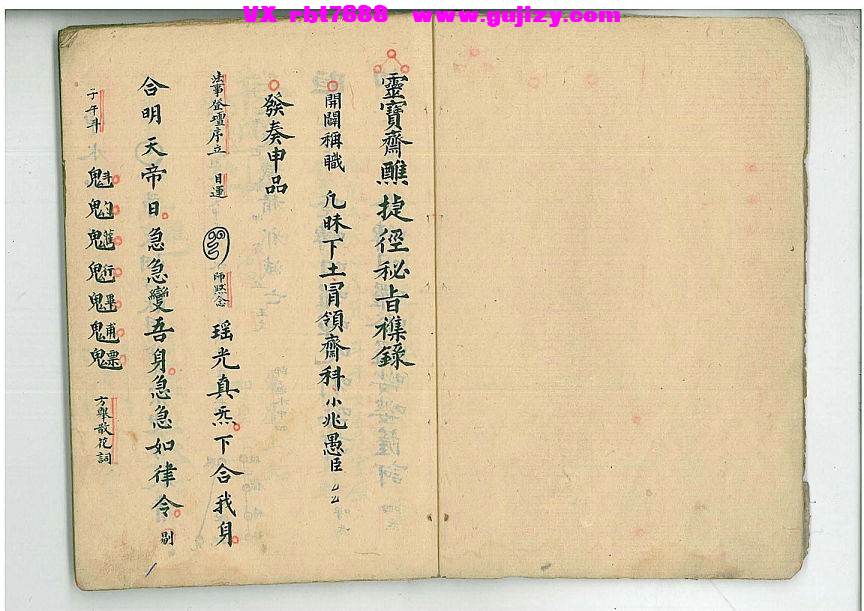 VX rbt7888 www.gujizy.com
靈寶齋醮捷徑秘旨襍錄
開闢稱職 凡昧下土冒領齋科小兆愚臣
發奏申品
法事登壇序立 目運 師默念 瑤光真炁下合我身
合明天帝日急急變吾身急急如律令
子午斗 魁𩲃䰢魓 方舉散花詞